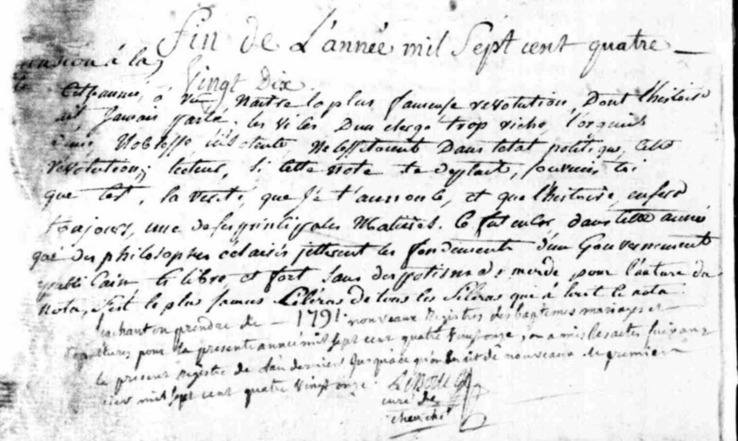 fin de L'année mil Sept cent quatre
à la
Vingt Dix.
Cet année, à vu, Naitre la plus fameuse revolution, Dont l'histoire
ait Jamais parlé. les vices D'un clergé trop riche, l'orgueil
D'une Noblesse insolente Necessitoient Dans l'etat politique, cette
revolution; lecteur, Si cette note te deplait, souviens toi
que c'est, la verité, que Je t'annonce, et que l'histoire, en fera
toujours, une de ses principales Matieres. Ce fut encore, dans cette année
que des philosophes éclairés jetterent les fondements d'un Gouvernement
libre et fort Sans despotisme merde pour l'auteur du
nota, c'est le plus fameux de tous les qui a ecrit le nota
1791. nouveaux Registres des baptemes mariages et
pour la presente année mil sept cent quatre vingt onze, on a mis les actes suivans
le present Registre de l'an dernier Jusqu'à ce qu'on eut de nouveaux le premier
mil sept cent quatre vingt onze.
curé de